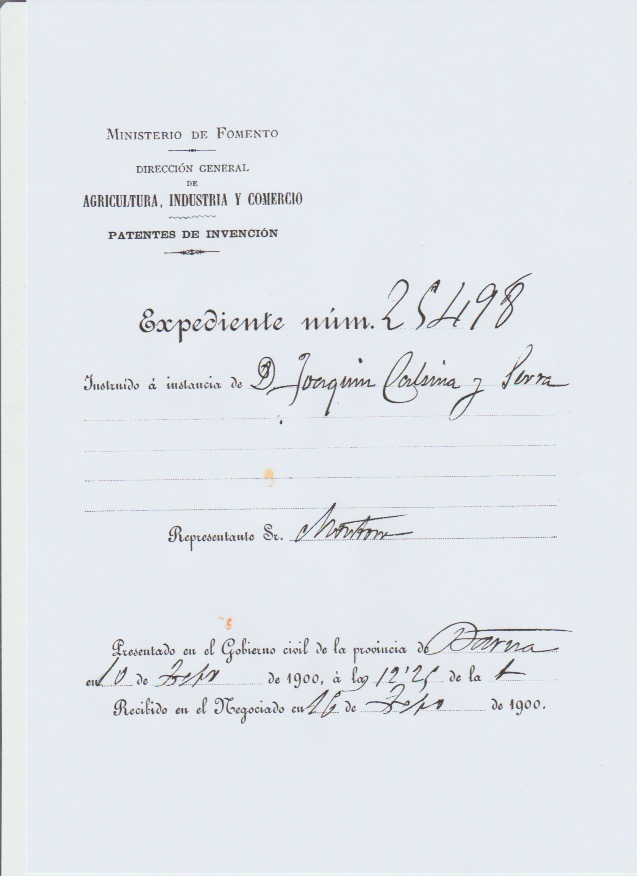 MINISTERIO DE FOMENTO
DIRECCIÓN GENERAL
DE
AGRICULTURA, INDUSTRIA Y COMERCIO
PATENTES DE INVENCIÓN
Expediente núm. 25498
Instruido á instancia de D Joaquin Calsina y Serra
Representante Sr.
Presentado en el Gobierno civil de la provincia de Barna
en 10 de de 1900, á las 12'25 de la t
Recibido en el Negociado en 26 de de 1900.